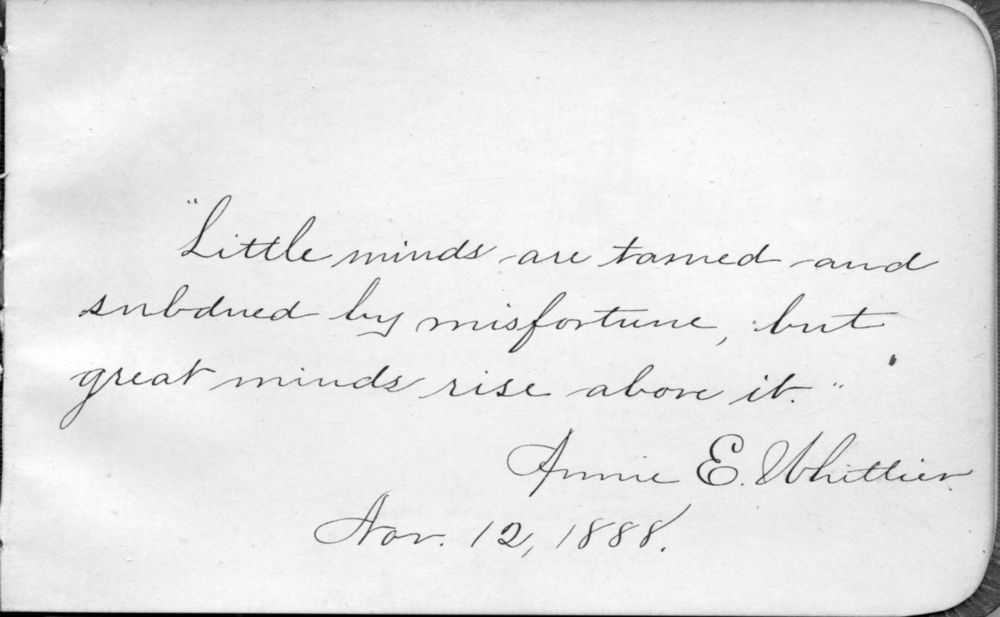 "Little minds are tamed and
subdued by misfortune, but
great minds rise above it."
Annie E. Whittier.
Nov. 12, 1888.